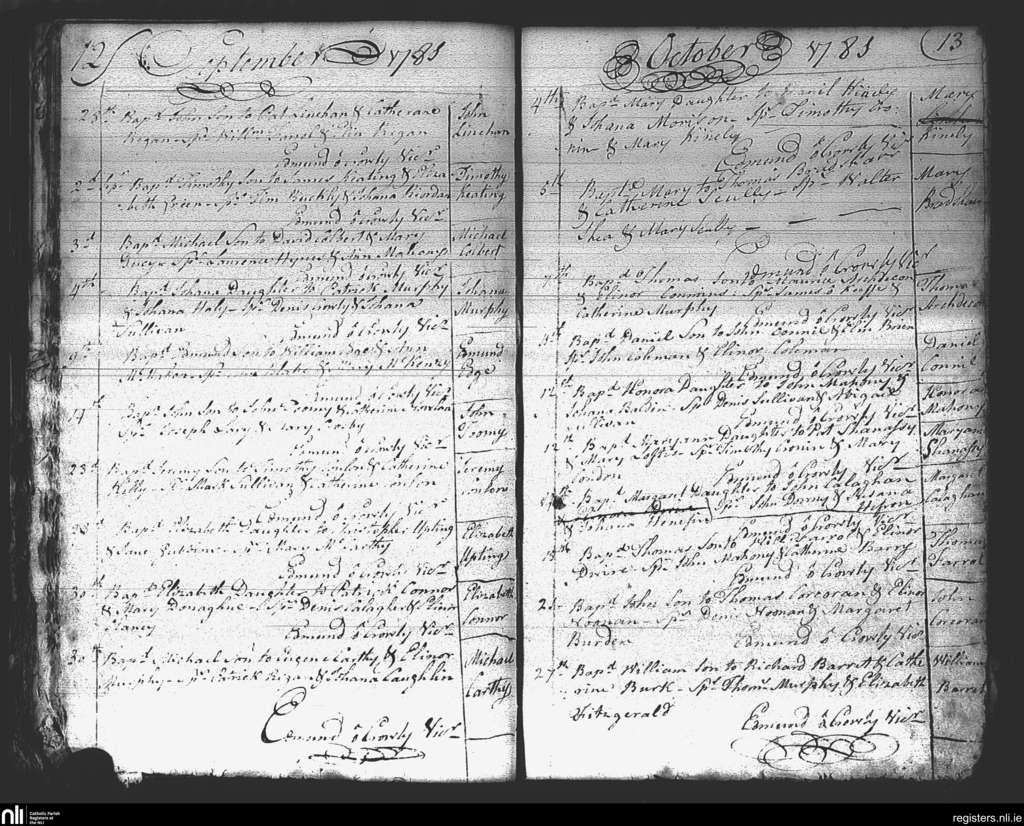 12
September 1781
28th Bapd John Son to Pat Linehan & Catherine
Regan - Sprs Willm & Regan
Edmund ô Crowly Vicr
John
Linehan
Bapd Timothy Son to James Keating & Eliza
beth Green - Sprs Tim Buckly & Johana Riordan
Edmund ô Crowly Vicr
Timothy
Keating
3d Bapd Michael Son to David Colbert & Mary
- Sprs Laurence Hynes & Ann Mahony
Edmund ô Crowly Vicr
Michael
Colbert
4th Bapd Johana Daughter to Patrick Murphy
& Johana Haly - Sprs Denis Crowly & Johana
Sullivan
Edmund ô Crowly Vicr
Johana
Murphy
9th Bapd Edmund Son to William & Ann
- Sprs & McKenzy
Edmund ô Crowly Vicr
Edmund
14th Bapd John Son to John Toomy & Catherine
Sprs Joseph & Mary
Edmund ô Crowly Vicr
John
Toomy
23d Bapd Jeremy Son to Timothy Conlon & Catherine
Kelly - Sprs Mark Sullivan & Catherine Conlon
Edmund ô Crowly Vicr
Jeremy
Conlon
28th Bapd Elizabeth Daughter to Christopher Upting
& Jane - Sprs Mary McCarthy
Edmund ô Crowly Vicr
Elizabeth
Upting
30th Bapd Elizabeth Daughter to Patrick Connor
& Mary Donaghue - Sprs Denis Calaghan & Elinor
Clancy
Edmund ô Crowly Vicr
Elizabeth
Connor
30th Bapd Michael Son to Eugene Carthy & Elinor
Murphy - Sprs Patrick Regan & Johana Laughlin
Edmund ô Crowly Vicr
Michael
Carthy
October 1781
13
4th Bapd Mary Daughter to Daniel Kinely
& Johana Morison - Sprs Timothy Cro-
nin & Mary Kinely
Edmund ô Crowly Vicr
Mary
Kinely
5th Bapd Mary to Thomas Bradshaw
& Catherine Scully - Sprs Walter
Shea & Mary Scully
Edmund ô Crowly Vicr
Mary
Bradshaw
7th Bapd Thomas Son to Maurice Archdeacon
& Elinor Commins - Sprs James ô Keeffe &
Catherine Murphy
Edmund ô Crowly Vicr
Thomas
Archdeacon
Bapd Daniel Son to John Connil & Elin Brien
Sprs John Coleman & Elinor Coleman
Edmund ô Crowly Vicr
Daniel
Connil
12th Bapd Honora Daughter to John Mahony &
Johana Baldin - Sprs Denis Sullivan & Abigail
Sullivan
Edmund ô Crowly Vicr
Honora
Mahony
12th Bapd Maryann Daughter to Pat Shanassy
& Mary Loftis - Sprs Timothy Cronin & Mary
London
Edmund ô Crowly Vicr
Maryann
Shanassy
Bapd Margaret Daughtr to John Calaghan
& Johana Henessin Sprs John Dorny & Susana
Edmund ô Crowly Vicr
Margaret
Calaghan
18th Bapd Thomas Son to Farrol & Elinor
Dwire - Sprs Tim Mahony & Catherine Barry
Edmund ô Crowly Vicr
Thomas
Farrol
Bapd John Son to Thomas Corcoran & Elinor
Noonan - Sprs Denis Noonan & Margaret
Burden
Edmund ô Crowly Vicr
John
Corcoran
27th Bapd William Son to Richard Barret & Cathe
rine Burk - Sprs Thoms Murphy & Elizabeth
Fitzgerald
Edmund ô Crowly Vicr
William
Barret
nli
Catholic Parish
Registers at
the NLI
registers.nli.ie